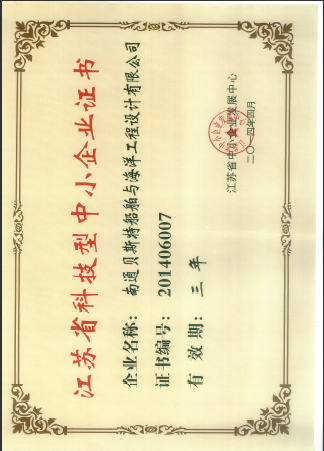 江苏省科技型中小企业证书
企业名称：南通贝斯特船舶与海洋工程设计有限公司
证书编号：201406007
有效期：三年
江苏省中小企业发展中心
二〇一四年四月